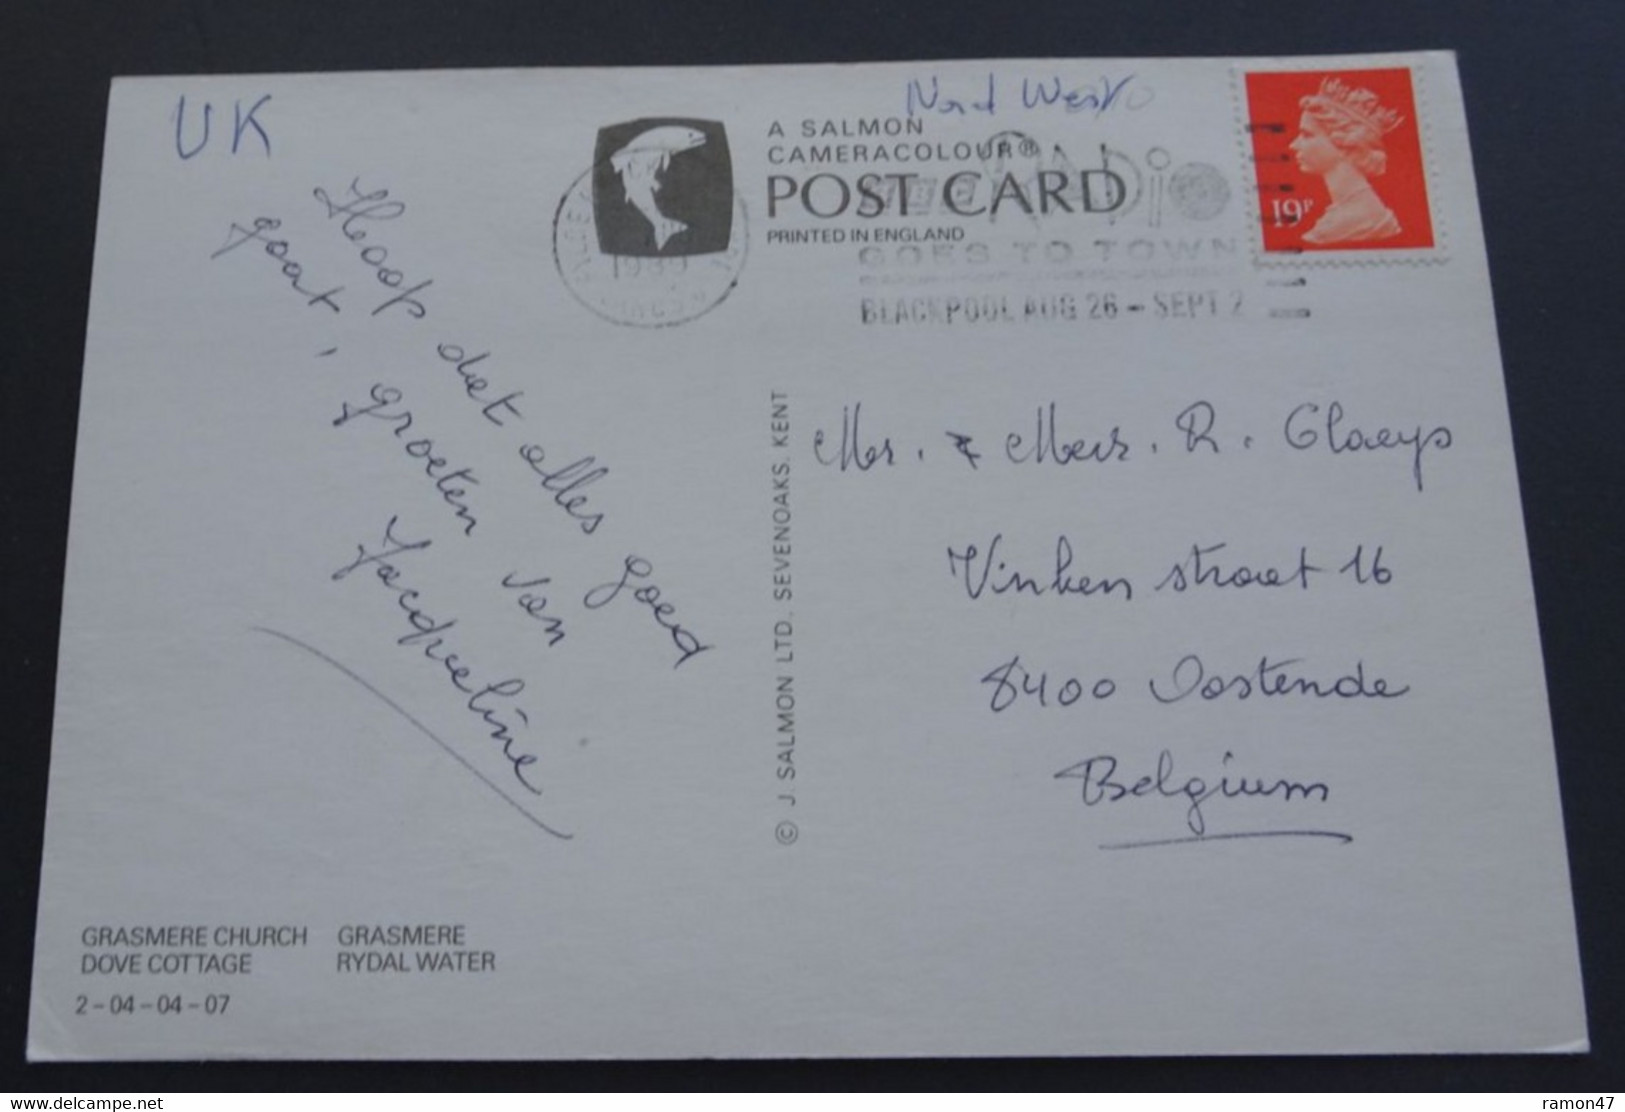 UK
Nord West
A SALMON
CAMERACOLOUR®
POST CARD
PRINTED IN ENGLAND
19P
RADIO
GOES TO TOWN
BLACKPOOL AUG 26 - SEPT 2
1989
Hoop dat alles goed
gaat, groeten van
Jacqueline
© J. SALMON LTD. SEVENOAKS. KENT
Mr. & Mevr. R. Claeys
Vinkenstraat 16
8400 Oostende
Belgium
GRASMERE CHURCH GRASMERE
DOVE COTTAGE RYDAL WATER
2-04-04-07
www.delcampe.net
ramon47